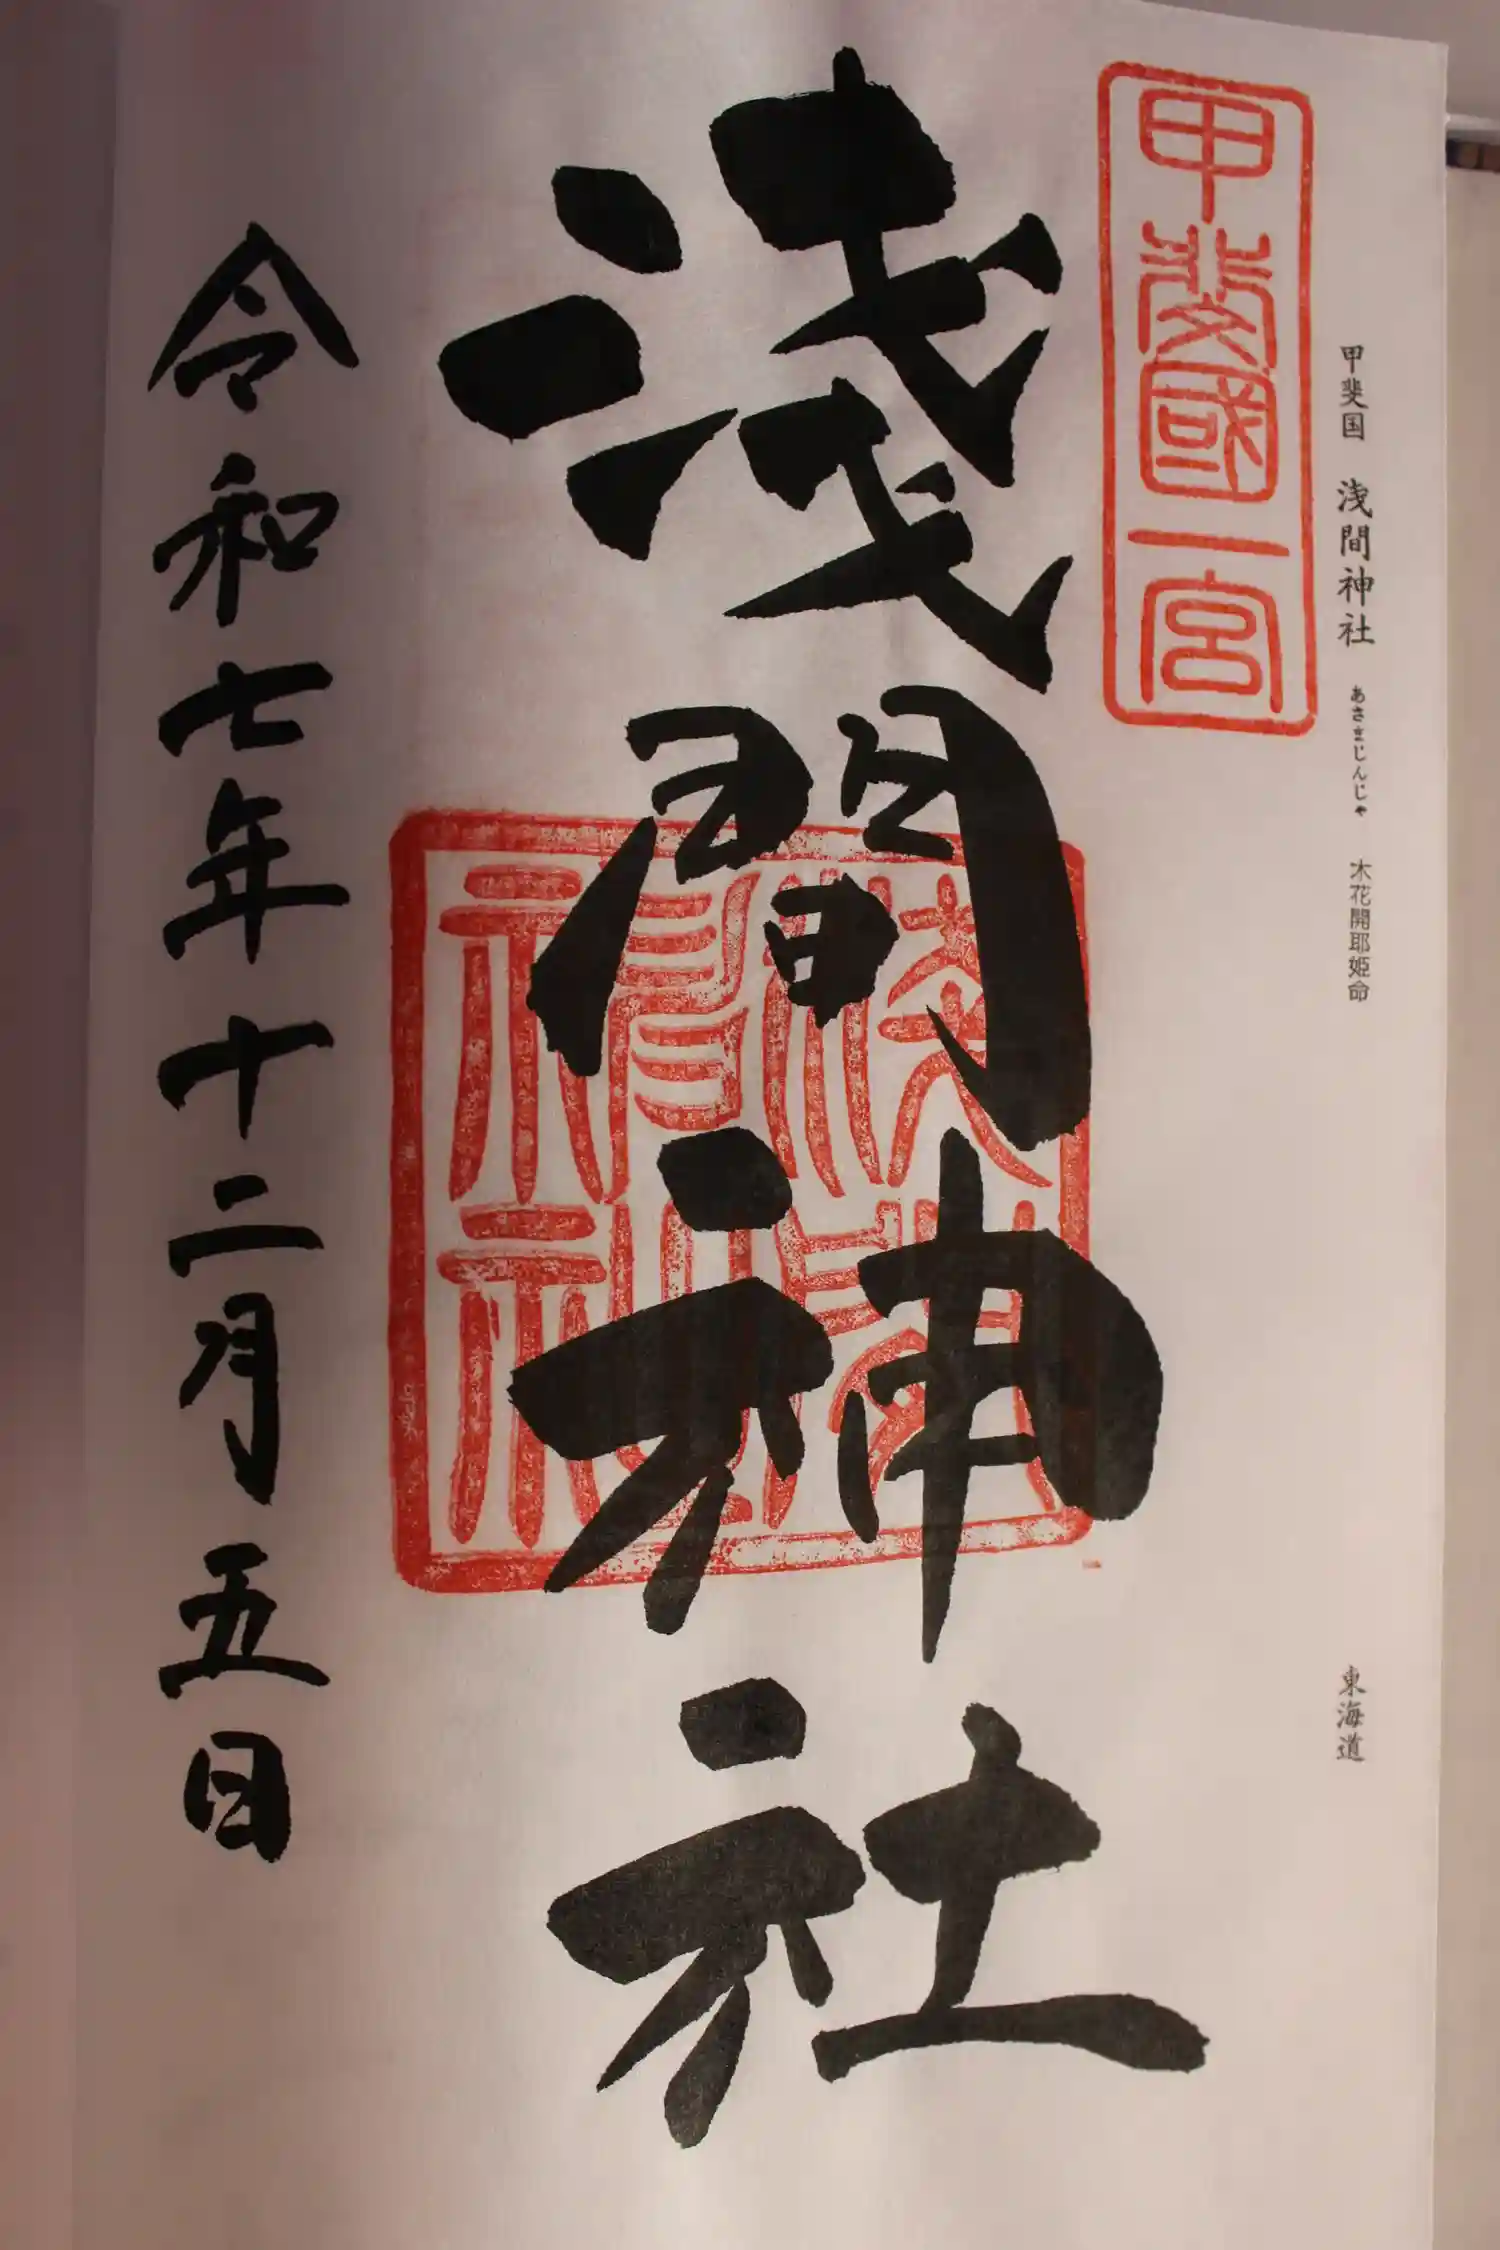 甲斐国 浅間神社 あさまじんじゃ 木花開耶姫命
東海道
甲斐國一宮
淺間神社
淺間神社神璽
令和七年十二月五日